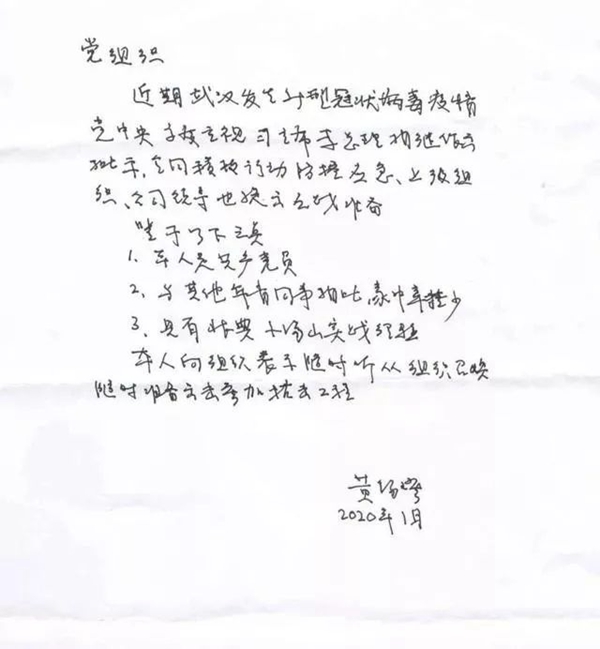 党组织
近期武汉发生新型冠状病毒疫情
党中央高度重视习主席李总理相继作出
批示,全国积极行动防控应急、上级组
织、公司领导也发出应战准备
鉴于以下三点
1、本人是共产党员
2、与其他年青同事相比,家中牵挂少
3、具有非典小汤山实战经验
本人向组织表示随时听从组织召唤
随时准备出击参加抗击工程
黄
2020年1月